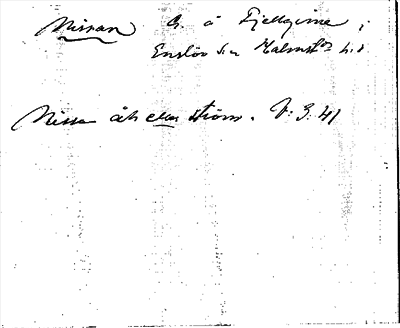 Nissan G. å Fjellgime i
Enslöv s:n Halmst:s h:d
Nissa åh elär ström. V: 3. 41